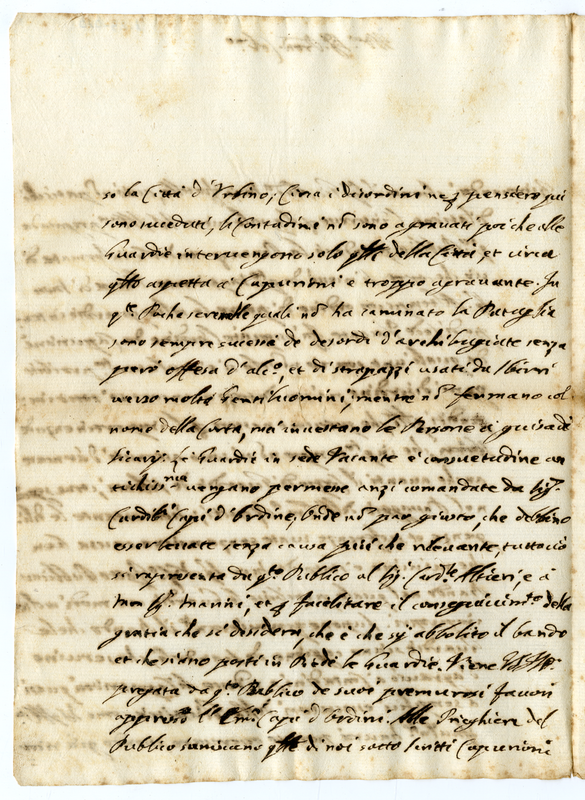 so la Città d'Urbino; Circa i disordini ne p. pensiero qui
sono suceduti, li Contadini nō sono agravati poiche alle
Guardie intervengono solo qlli della Città et circa
qllo aspetta a Capurioni è troppo agravante. In
q.te Poche sere nelle quali nō ha caminato la Pattuglia
sono sempre sucessi de desordi d'archibugiate senza
però offesa d'alc.o, et di strapazzi usati da Sbirri
verso molti Gentilhuomini, mentre nō fermano col
nome della Corte, mà investano le Persone à guisa di
Sicarij. Le Guardie in sede Vacante è consuetudine an
tichiss.ma vengano permesse anzi comandate da Sig.ri
Cardili Capi d'Ordine, Onde nō par giusto, che debbino
esser levate senza causa più che rilevante, tutto ciò
si rapresenta da q.to Publico al Sig. Card.le Altieri, e à
Mon Sig. Marini, et p facilitare il conseguim.to della
gratia che si desidera, che è che sij abbolito il bando
et che siano posti in Piede le Guardie. Viene
pregata da q.to Publico de suoi premurosi favori
appresso l'Emi Capi d'Ordini. Alle Preghiere del
Publico s'uniscano qlle di noi sotto scritti Capurioni